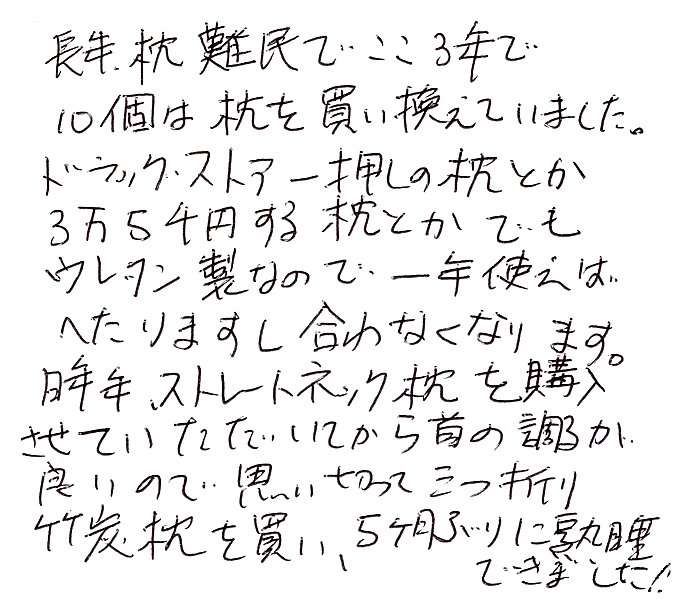 長年、枕難民で、ここ3年で
10個は枕を買い換えていました。
ドラッグストアー押しの枕とか
3万5千円する枕とかでも
ウレタン製なので、一年使えば
へたりますし合わなくなります。
昨年、ストレートネック枕を購入
させていただいてから首の調子が
良いので、思い切って三つ折り
竹炭枕を買い、5ヶ月ぶりに熟睡
できました!!